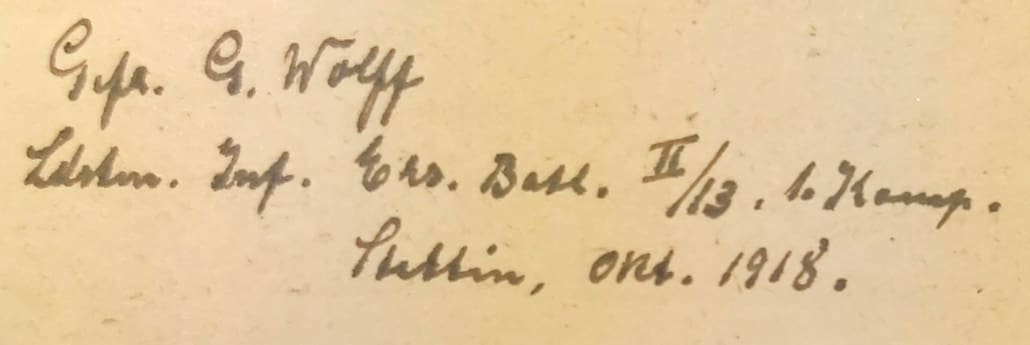 Gefr. G. Wolff
Ldstm. Inf. Ers. Batl. II/13. 1. Komp.
Stettin, Okt. 1918.